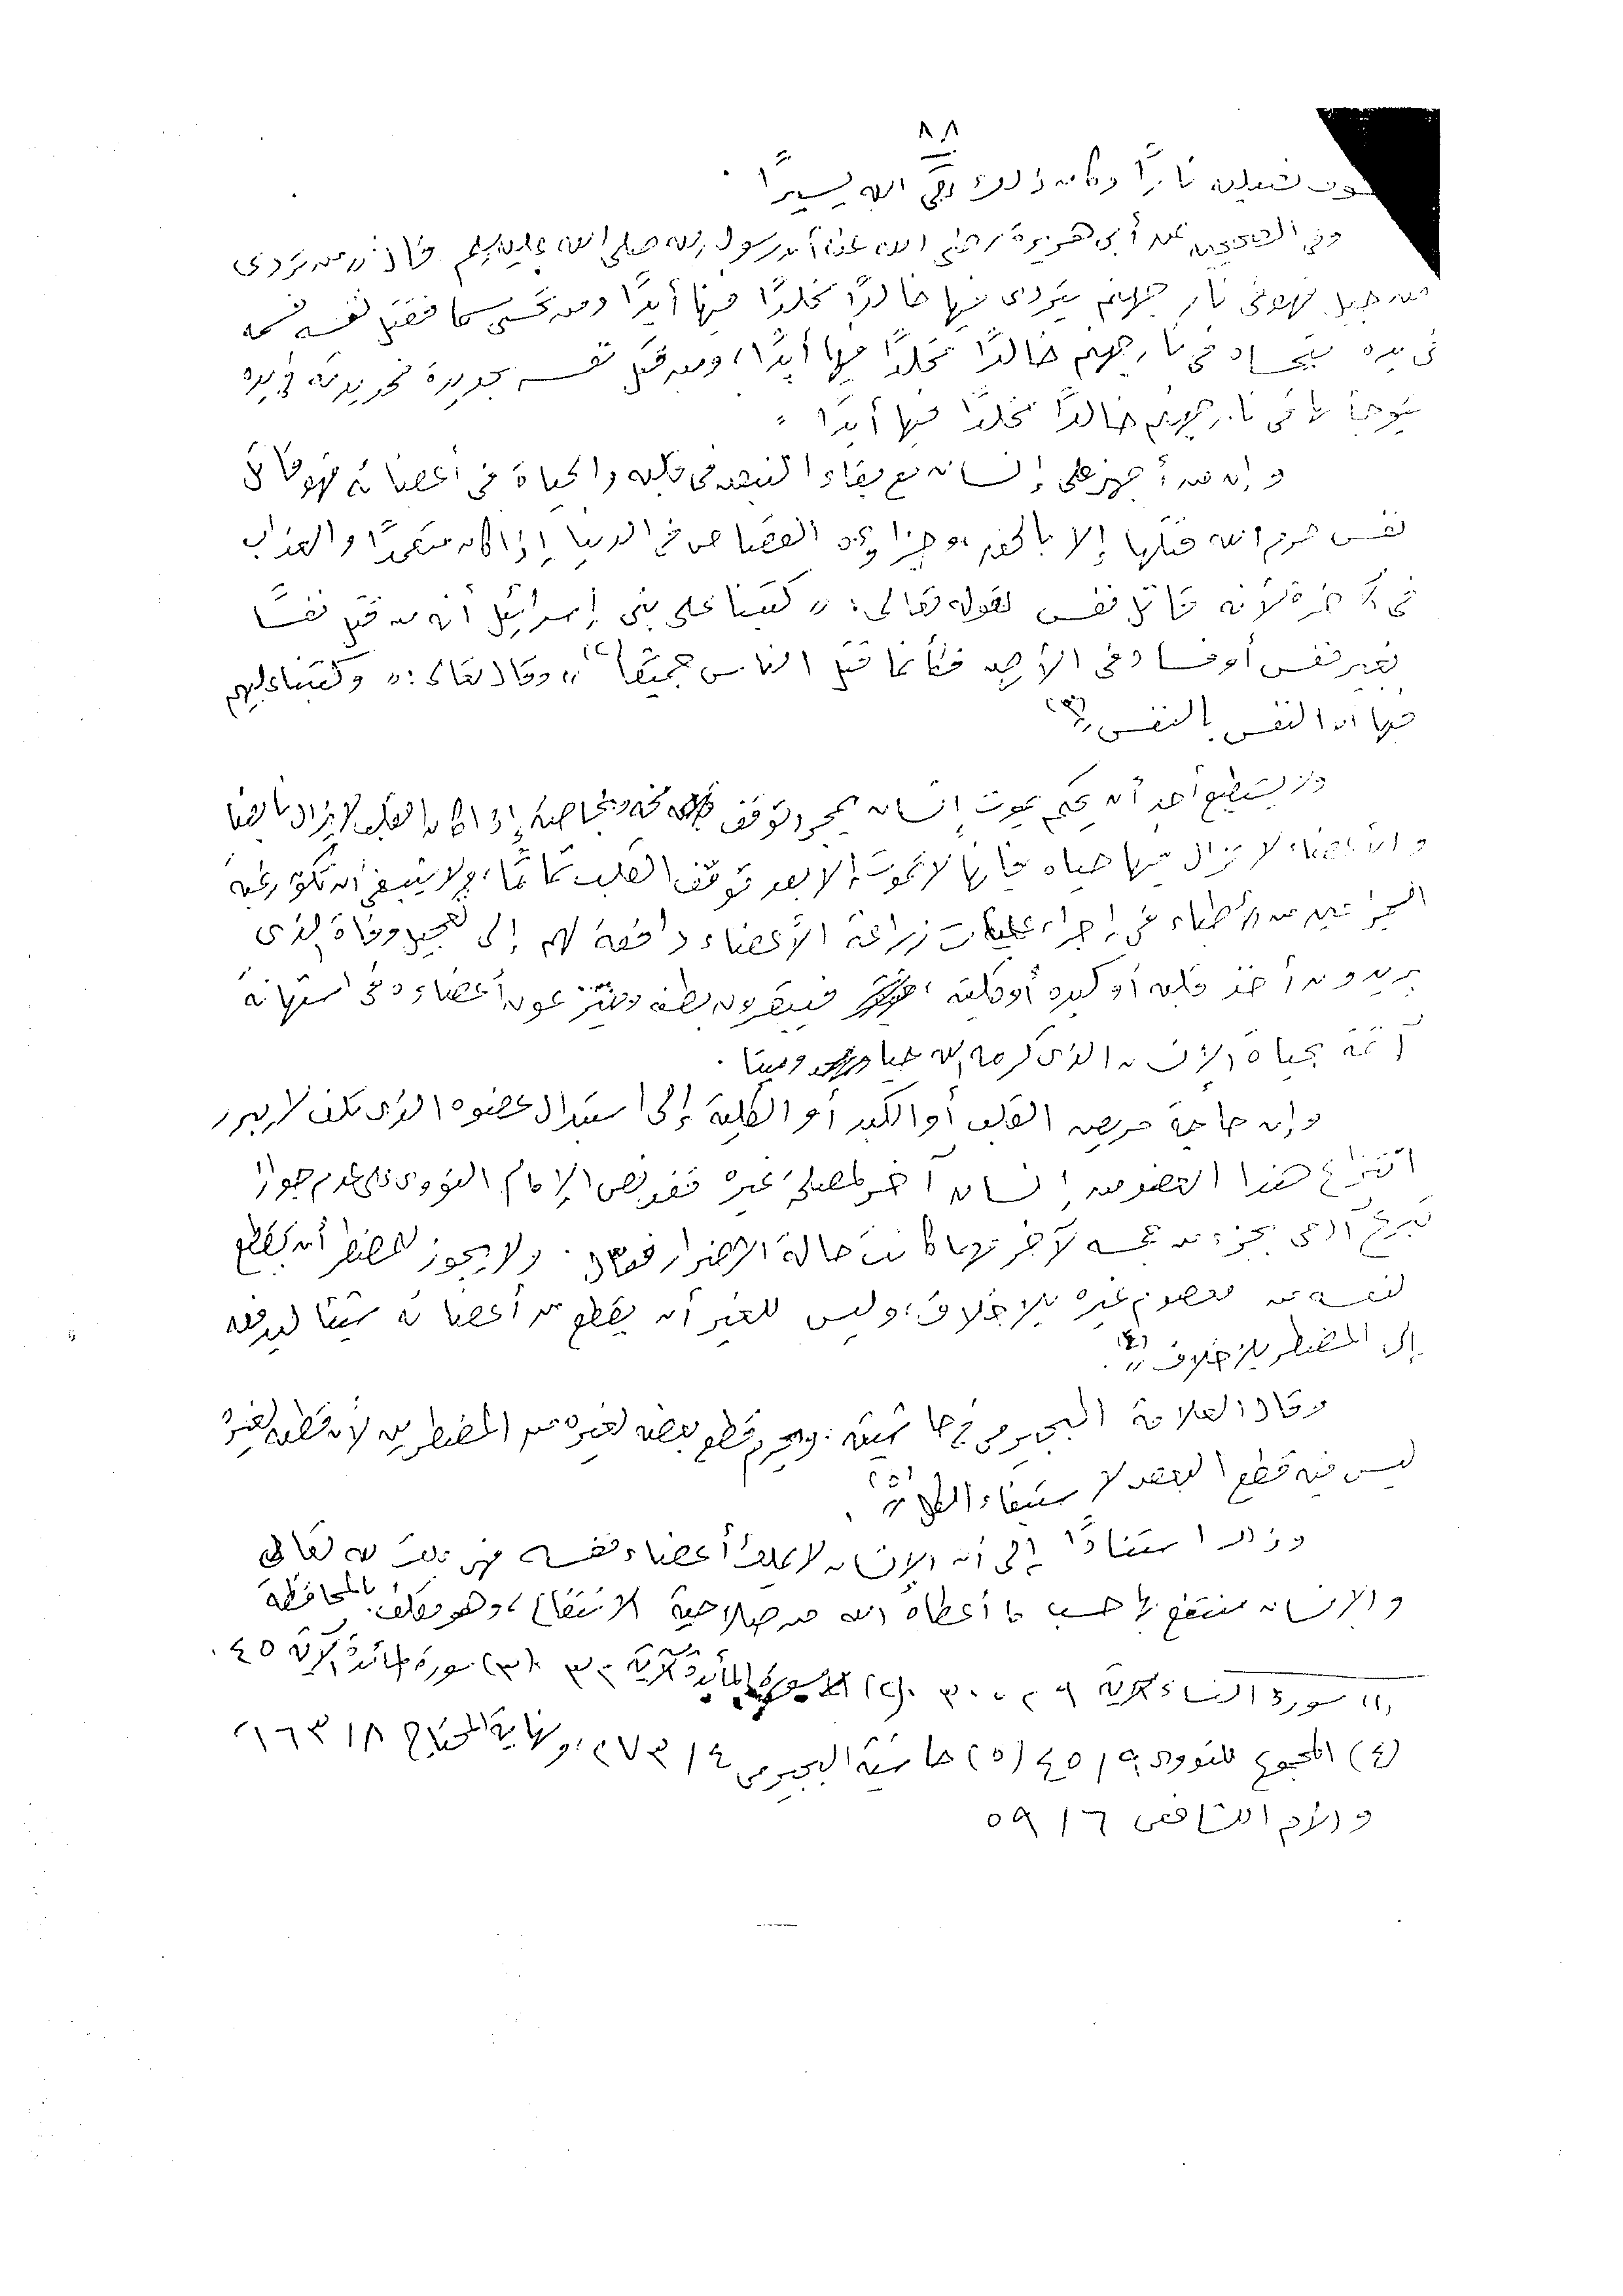 ٨٨
نصليه نارًا وكان ذلك على الله يسيرًا
وفى الصحيحين عن أبى هريرة رضى الله عنه أن رسول الله صلى الله عليه وسلم قال: «من تردى
من جبل فهو فى نار جهنم يتردى فيها خالدًا مخلدًا فيها أبدًا ومن تحسى سما فقتل نفسه فسمه
فى يده يتحساه فى نار جهنم خالدًا مخلدًا فيها أبدًا، ومن قتل نفسه بحديدة فحديدته فى يده
يتوجأ بها فى نار جهنم خالدًا مخلدًا فيها أبدًا»
وإن من أجهز على إنسان مع بقاء النبض فى قلبه والحياة فى أعضائه فهو قاتل
نفس حرم الله قتلها إلا بالحق، وجزاؤه القصاص فى الدنيا إذا كان متعمدًا والعذاب
فى الآخرة لأنه قاتل نفس لقوله تعالى: «كتبنا على بنى إسرائيل أنه من قتل نفسًا
بغير نفس أو فساد فى الأرض فكأنما قتل الناس جميعًا (٢)» وقال تعالى: «وكتبنا عليهم
فيها أن النفس بالنفس» (٣)
ولا يستطيع أحد أن يحكم بموت إنسان بمجرد توقف مخه وبخاصة إذا كان القلب لا يزال نابضا
والأعضاء لا تزال فيها حياه فإنها لا تموت إلا بعد توقف القلب تمامًا، ولا ينبغى أن تكون رغبة
الجراحين من الأطباء فى إجراء عمليات زراعة الأعضاء دافعة لهم إلى تعجيل وفاة الذى
يريدون أخذ قلبه أو كبده أو كليته، فيبقرون بطنه وينتزعون أعضاءه فى استهانة
آثمة بحياة الإنسان الذى كرمه الله حيا وميتا.
وإن حاجة مريض القلب أو الكبد أو الكلية إلى استبدال عضوه الذى تلف لا يبرر
انتزاع هذا العضو من إنسان آخر لمصلحة غيره فقد نص الإمام النووى على عدم جواز
تبرع آدمى بجزء من جسمه لآخر مهما كانت حالة الاضرار فقال: ولا يجوز للمضطر أن يقطع
لنفسه من معصوم غيره بلا خلاف، وليس للغير أن يقطع من أعضائه شيئا ليدفعه
إلى المضطر بلا خلاف» (٤).
وقال العلامة البجيرمى فى حاشيته: ويحرم قطع بعضه لغيره من المضطرين لأن قطعه لغيره
ليس فيه قطع البعض لاستبقاء الكل» (٥).
وذلك استنادًا إلى أن الإنسان لا يملك أعضاء نفسه فهى ملك لله تعالى
والإنسان منتفع بها حسب ما أعطاه الله من صلاحية الانتفاع، وهو مكلف بالمحافظة
(١) سورة النساء الآية ٢٩، ٣٠. (٢) سورة المائدة الآية ٣٢. (٣) سورة المائدة الآية ٤٥.
(٤) المجموع للنووى ٩/٤٥ (٥) حاشية البجيرمى ٤/٢٧٣، ونهاية المحتاج ٨/١٦٣،
والأم للشافعى ٦/٥٩